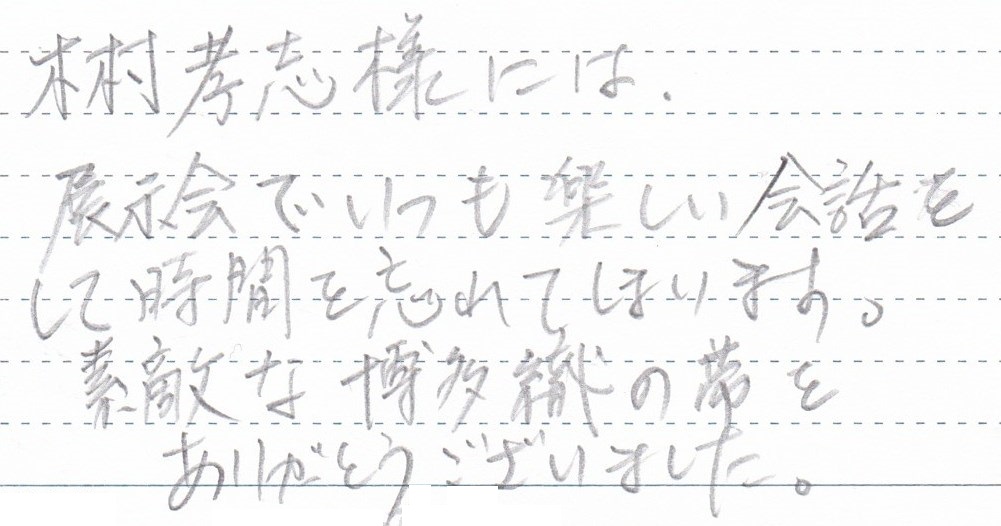 木村孝志様には、
展示会でいつも楽しい会話を
して時間を忘れてしまいます。
素敵な博多織の帯を
ありがとうございました。